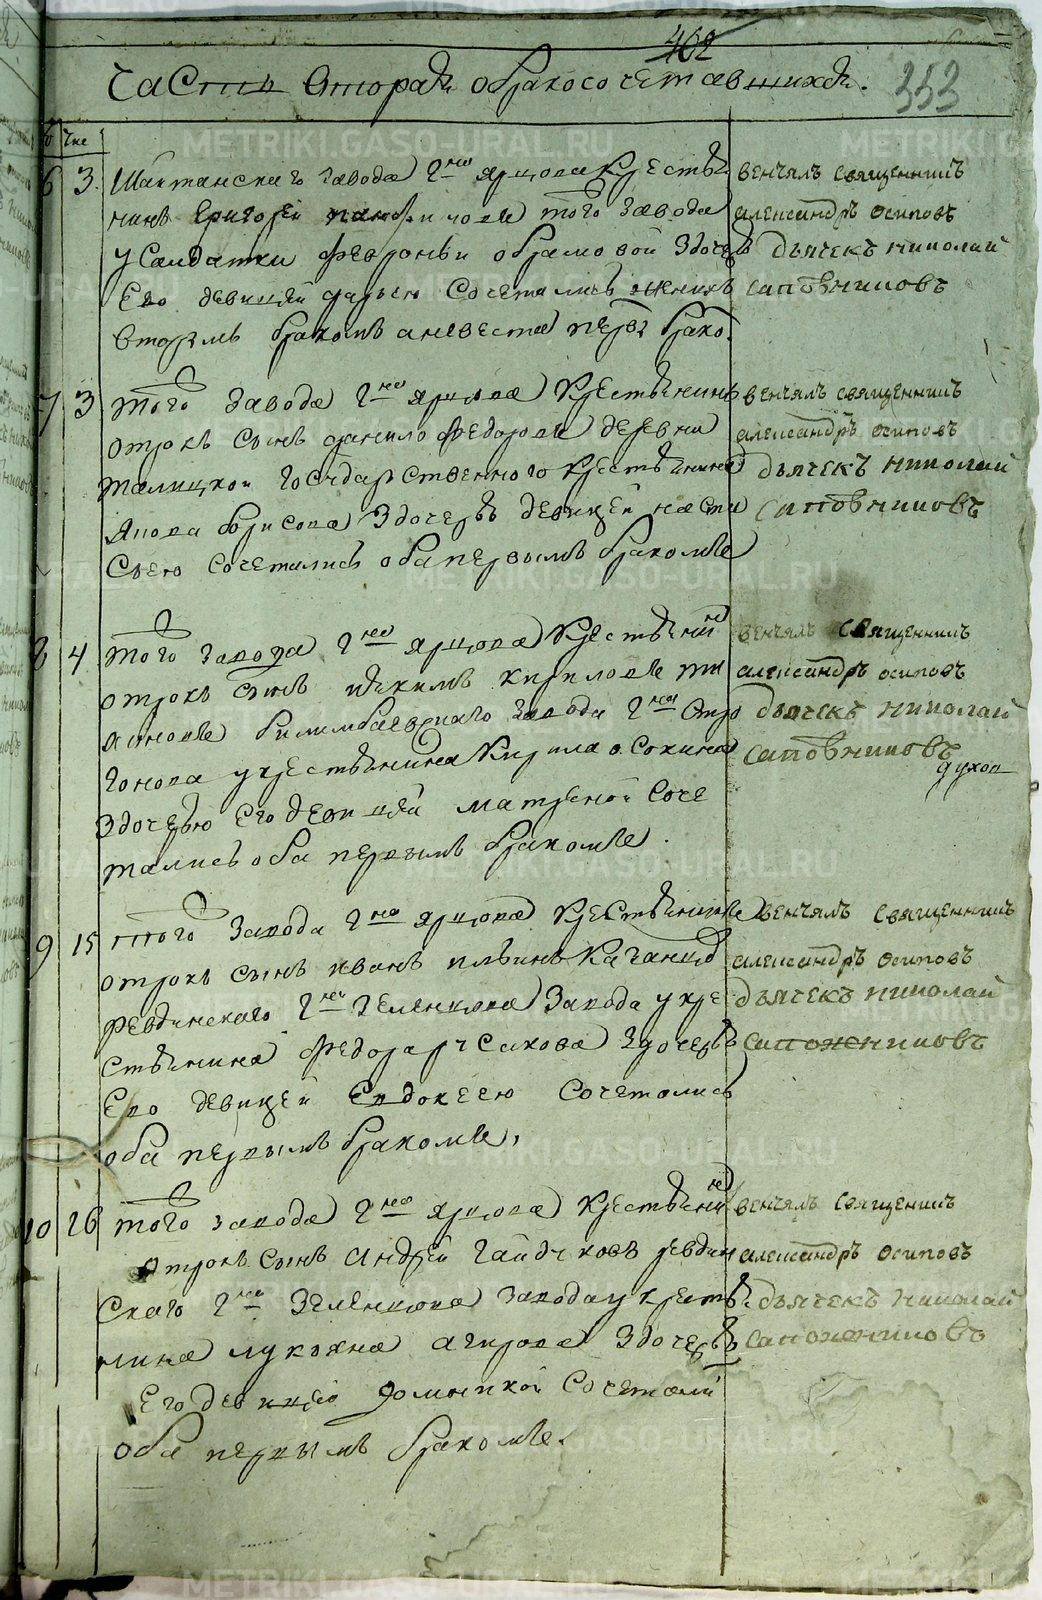 462
353
Часть вторая о бракосочетавшихся.
Чис
6 3 Шайтанскаго завода г-на Ярцова крестья
нинъ Григорей того завода
у салдатки Февроньи Абрамовой з дочерью
Ево девицей Дарьею сочетались жених
вторымъ бракомъ а невеста первы брако.
венчалъ священникъ
александръ осиповъ
дьячекъ николай
сапожниковъ
7 3 того завода г-на Ярцова крестьянинъ
отрокъ сынъ данило Федоровъ деревни
талицкой государственного крестьянина
Якова борисова з дочерью девицей наста
сьею сочетались оба первымъ бракомъ
венчалъ священникъ
александръ осиповъ
дьячекъ николай
сапожниковъ
8 4 того завода г-на Ярцова крестьянинъ
отрокъ сынъ Кириловъ пи
билимбаевскаго завода г-на Стро
гонова у крестьянина Кирила Сокина
з дочерью Его девицей матреной соче
тались оба первымъ бракомъ.
венчалъ священникъ
александръ осиповъ
дьячекъ николай
сапожниковъ
9 15 того завода г-на Ярцова крестьянинъ
отрокъ сынъ иванъ ильинъ
ревдинскаго г-на Зеленцова завода у кре
стьянина Федора з дочерью
Ево девицей Евдокеею сочетались
оба первымъ бракомъ,
венчалъ священникъ
александръ осиповъ
дьячекъ николай
сапожниковъ
10 26 того завода г-на Ярцова крестьянинъ
отрокъ сынъ Андрей Гайдуковъ ревдин
скаго г-на Зеленцова завода у кресть
нина лукояна з дочерью
Его девицею доминикой сочетались
оба первымъ бракомъ.
венчалъ священникъ
александръ осиповъ
дьячекъ николай
сапожниковъ
METRIKI.GASO-URAL.RU